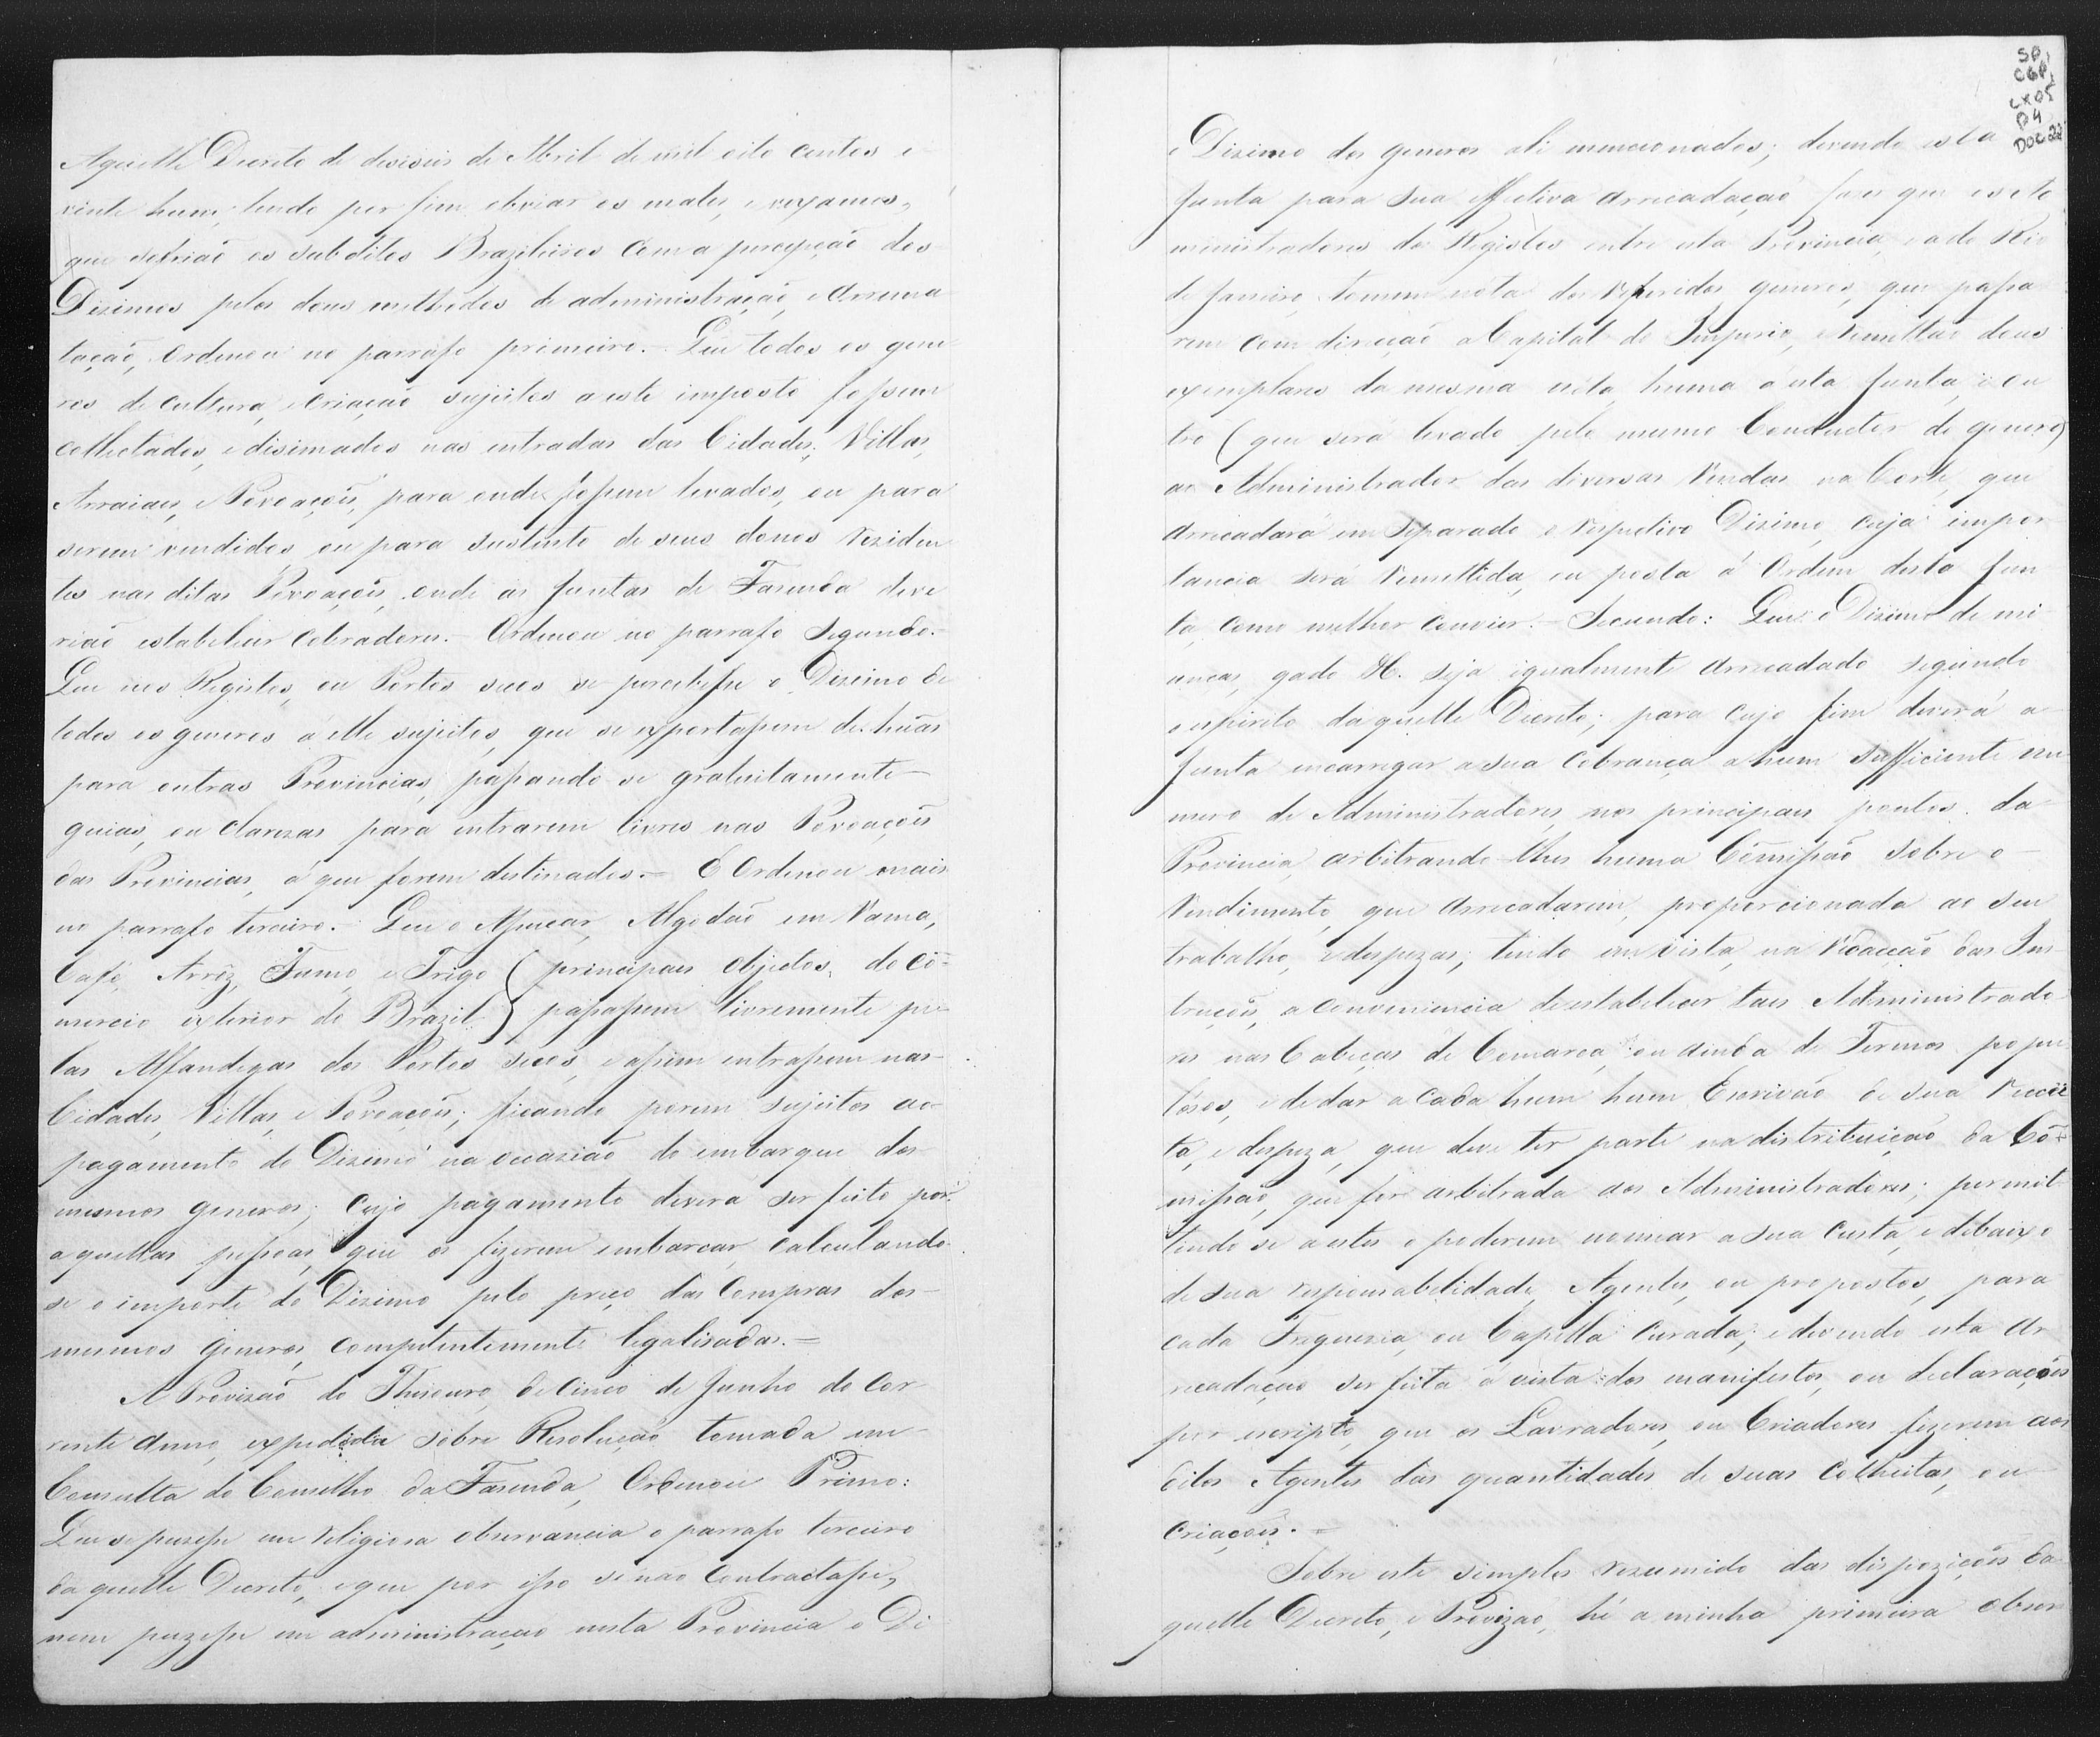 Aquelle Decreto de deseseis de Abril de mil oito centos e
vinte hum, tendo por fim obviar os males, e vexames,
que sofrião os subditos Brazileiros com a percepção dos
Dizimos pelos dous methodos de administração, e Arrema
tação, Ordenou no parrafo primeiro. Que todos os gene
ros de cultura, e criação sujeitos a este imposto fossem
collectados, e disimados nas entradas das Cidades, Villas,
Arraiaes, e Povoações, para onde fossem levados, ou para
serem vendidos, ou para sustento de seus donos reziden
tes nas ditas Povoações, onde as Juntas de Fazenda deve
rião estabelecer Cobradores. Ordenou no parrafo segundo.
Que nos Registos, ou Portos secos se percebesse o Dizimo de
todos os generos á elle sujeitos, que se exportassem de huãs
para outras Provincias, passando se gratuitamente
guias, ou clarezas para entrarem livres nas Povoações
das Provincias, á que forem destinados. E Ordenou mais
no parrafo terceiro. Que o Assucar, Algodão em rama,
Café, Arrôz, Fumo, e Trigo (principaes objectos do cô=
mercio exterior do Brazil) passassem livremente pe
las Alfandegas dos Portos secos, e assim entrassem nas
Cidades, Villas, e Povoações; ficando porem sujeitos ao
pagamento do Dizimo na occazião do embarque dos
mesmos generos; cujo pagamento deverá ser feito por
aquellas pessoas, que os fizerem embarcar, calculando
se o importe do Dizimo pelo preço das compras dos
mesmos generos, competentemente legalisadas.=
A Provizão do Thesouro, de cinco de Junho do cor
rente anno, expedida sobre Resolução tomada em
Consulta do Conselho da Fazenda, Ordenou Primo:
Que se puzesse em religiosa observancia o parrafo terceiro
da quelle Decreto, e que por isso se não Contractasse,
nem puzesse em administração nesta Provincia o Di
SP,
CGP,
CX05
P4
DOC 22
Dizimo dos generos ali mencionados; devendo esta
Junta para sua effectiva arrecadação fazer que os Ad
ministradores dos Registos entre esta Provincia, e a do Rio
de Janeiro, tomem nota dos referidos generos, que passa
rem com direcção a Capital do Imperio, e remettão dous
exemplares da mesma nota, huma á esta Junta, e ou
tro (que será levado pelo mesmo Conductor do genero)
ao Administrador das diversas rendas na Corte, que
arrecadará em separado o respectivo Dizimo, cuja impor
tancia será remettida, ou posta á Ordem desta Jun
ta, como melhor convier. Secundo: Que o Dizimo de mi
unças, gado &c. seja igualmente arrecadado segundo
o espirito daquelle Decreto; para cujo fim deverá a
Junta encarregar a sua cobrança a hum sufficiente nu
mero de Administradores, nos principaes pontos da
Provincia, arbitrando-lhes huma Cômissão sobre o
rendimento, que arrecadarem, proporcionada ao seu
trabalho, e despezas; tendo em vista, na redacção das Ins
trucções, a conveniencia de estabelecer taes Administrado
res nas Cabeças de Comarca, ou ainda de Termos popu
lósos, e de dar a cada hum hum Escrivão de sua recei
ta, e despeza, que deve ter parte na distribuição da Cô=
missão, que for arbitrada aos Administradores; permit
tindo se a estes o poderem nomear a sua custa, e debaixo
de sua responsabelidade, Agentes, ou propostos, para
cada Freguezia, ou Capella Curada; e devendo esta Ar
recadação ser feita á vista dos manifestos, ou declarações
por escripto, que os Lavradores, ou Criadores fizerem aos
ditos Agentes das quantidades de suas colheitas, ou
criações.=
Sobre este simples rezumido das dispozições da
quelle Decreto, e Provizão, hé a minha primeira obser